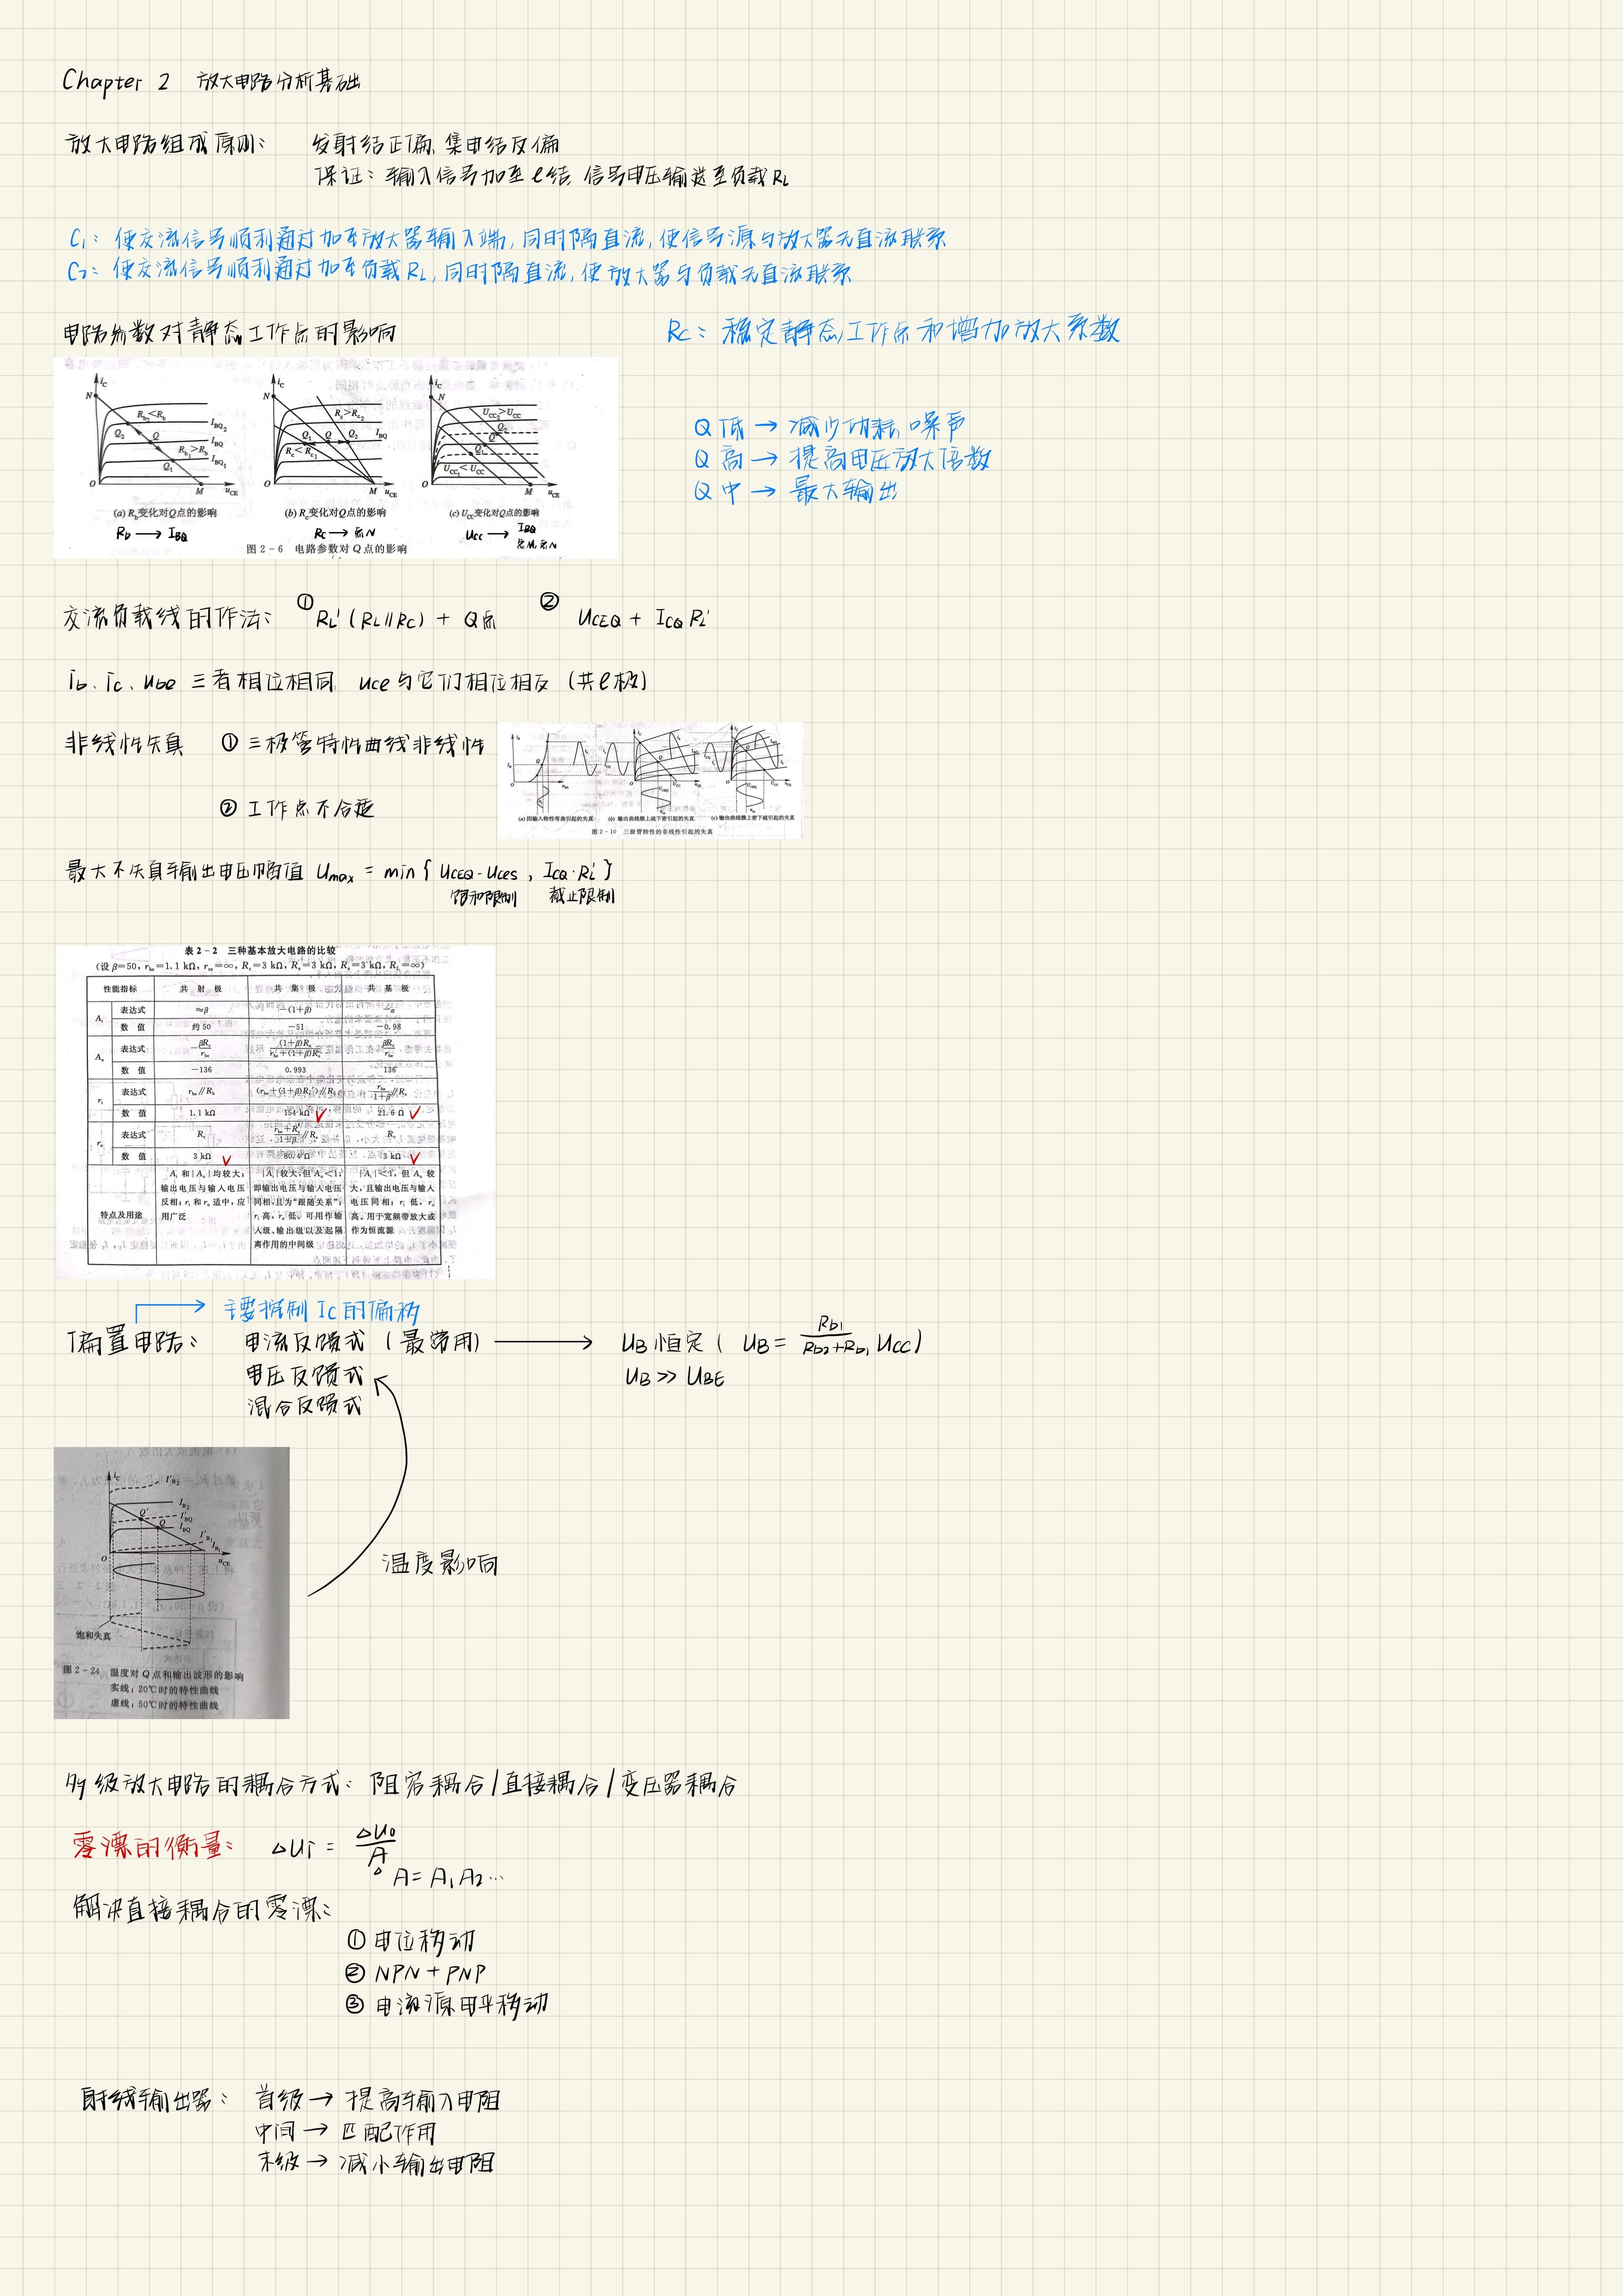 Chapter 2 放大电路分析基础
放大电路组成原则： 发射结正偏、集电结反偏
保证：输入信号加至e结，信号电压输送至负载RL
C1：使交流信号顺利通过加至放大器输入端，同时隔直流，使信号源与放大器无直流联系
C2：使交流信号顺利通过加至负载RL，同时隔直流，使放大器与负载无直流联系
电路参数对静态工作点的影响
Rc：稳定静态工作点和增加放大系数
(a) Rb变化对Q点的影响
(b) Rc变化对Q点的影响
(c) UCC变化对Q点的影响
Rb → IBQ
Rc → 点N
Ucc → IBQ
点M，点N
图 2-6 电路参数对 Q 点的影响
Q 低 → 减少功耗，噪声
Q 高 → 提高电压放大倍数
Q 中 → 最大输出
交流负载线的作法： ① RL'（RL//RC）+ Q点 ② UCEQ + ICQ RL'
ib、ic、ube 三者相位相同 uce与它们相位相反（共e极）
非线性失真 ① 三极管特性曲线非线性
② 工作点不合适
(a) 因输入特性弯曲引起的失真 (b) 输出曲线簇上疏下密引起的失真 (c) 输出曲线簇上密下疏引起的失真
图 2-10 三极管特性的非线性引起的失真
最大不失真输出电压幅值 Umax = min { UCEQ - UCES , ICQ · RL' }
饱和限制 截止限制
表 2-2 三种基本放大电路的比较
（设 β=50, rbe=1.1 kΩ, rce=∞, Rc=3 kΩ, Re=3 kΩ, Rs=3 kΩ, RL=∞）
性能指标 共 射 极 共 集 极 共 基 极
Ai 表达式 ≈β −(1+β) −α
数 值 约 50 −51 −0.98
Au 表达式 −βRc/rbe (1+β)Re/rbe+(1+β)Re βRc/rbe
数 值 −136 0.993 136
ri 表达式 rbe//Rb (rbe+(1+β)Re')//Rb rbe/1+β//Re
数 值 1.1 kΩ 154 kΩ 21.6 Ω
ro 表达式 Rc rbe+Rs'/1+β//Re Rc
数 值 3 kΩ 80.4 Ω 3 kΩ
特点及用途
Ai 和 |Au| 均较大；输出电压与输入电压反相；ri 和 ro 适中，应用广泛
|Ai| 较大，但 Au<1；即输出电压与输入电压同相，且为“跟随关系”；ri 高，ro 低，可用作输入级、输出级以及起隔离作用的中间级
|Ai|<1，但 Au 较大，且输出电压与输入电压同相；ri 低，ro 高。用于宽频带放大或作为恒流源
主要抑制 Ic 的偏移
偏置电路： 电流反馈式（最常用） → UB 恒定（ UB = Rb1/Rb2+Rb1 UCC）
电压反馈式 UB ≫ UBE
混合反馈式
温度影响
饱和失真
图 2-24 温度对 Q 点和输出波形的影响
实线：20℃时的特性曲线
虚线：50℃时的特性曲线
多级放大电路的耦合方式：阻容耦合/直接耦合/变压器耦合
零漂的衡量： ΔUi = ΔUo/A
A = A1 A2…
解决直接耦合的零漂：
① 电位移动
② NPN + PNP
③ 电流源电平移动
射级输出器： 首级 → 提高输入电阻
中间 → 匹配作用
末级 → 减小输出电阻